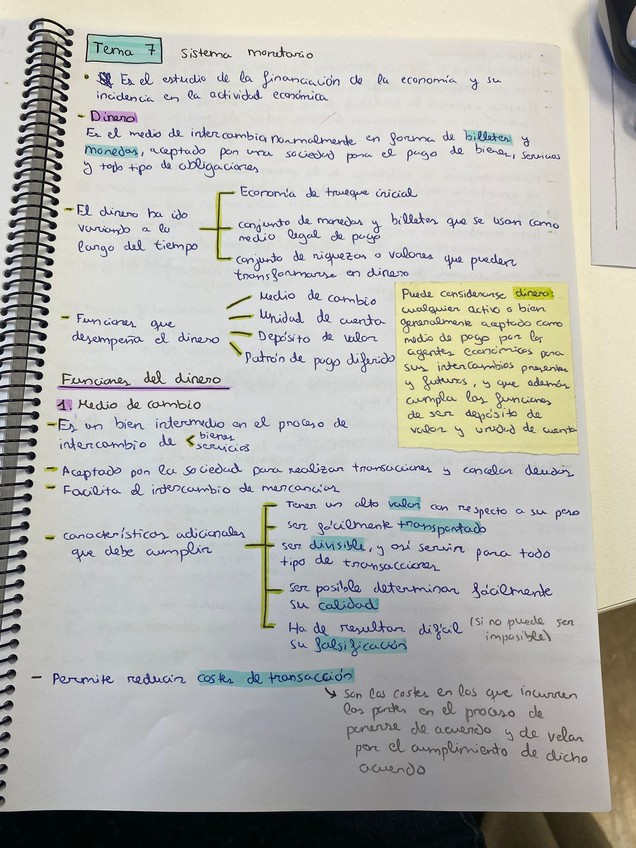 Tema 7 Sistema monetario
• Es el estudio de la financiación de la economía y su
incidencia en la actividad económica
- Dinero
Es el medio de intercambio, normalmente en forma de billetes y
monedas, aceptado por una sociedad para el pago de bienes, servicios
y todo tipo de obligaciones
- El dinero ha ido
variando a lo
largo del tiempo
Economía de trueque inicial
conjunto de monedas y billetes que se usan como
medio legal de pago
conjunto de riquezas o valores que pueden
transformarse en dinero
- Funciones que
desempeña el dinero
Medio de cambio
Unidad de cuenta
Depósito de valor
Patrón de pago diferido
Puede considerarse dinero:
cualquier activo o bien
generalmente aceptado como
medio de pago por los
agentes económicos para
sus intercambios presentes
y futuros, y que además
cumpla las funciones
de ser depósito de
valor y unidad de cuenta
Funciones del dinero
1. Medio de cambio
- Es un bien intermedio en el proceso de
intercambio de < bienes
servicios
- Aceptado por la sociedad para realizar transacciones y cancelar deudas
- Facilita el intercambio de mercancías
- características adicionales
que debe cumplir
Tener un alto valor con respecto a su peso
ser fácilmente transportado
ser divisible, y así servir para todo
tipo de transacciones
Ser posible determinar fácilmente
su calidad
Ha de resultar difícil (si no puede ser
imposible)
su falsificación
- Permite reducir costes de transacción
↳ son los costes en los que incurren
las partes en el proceso de
ponerse de acuerdo y de velar
por el cumplimiento de dicho
acuerdo